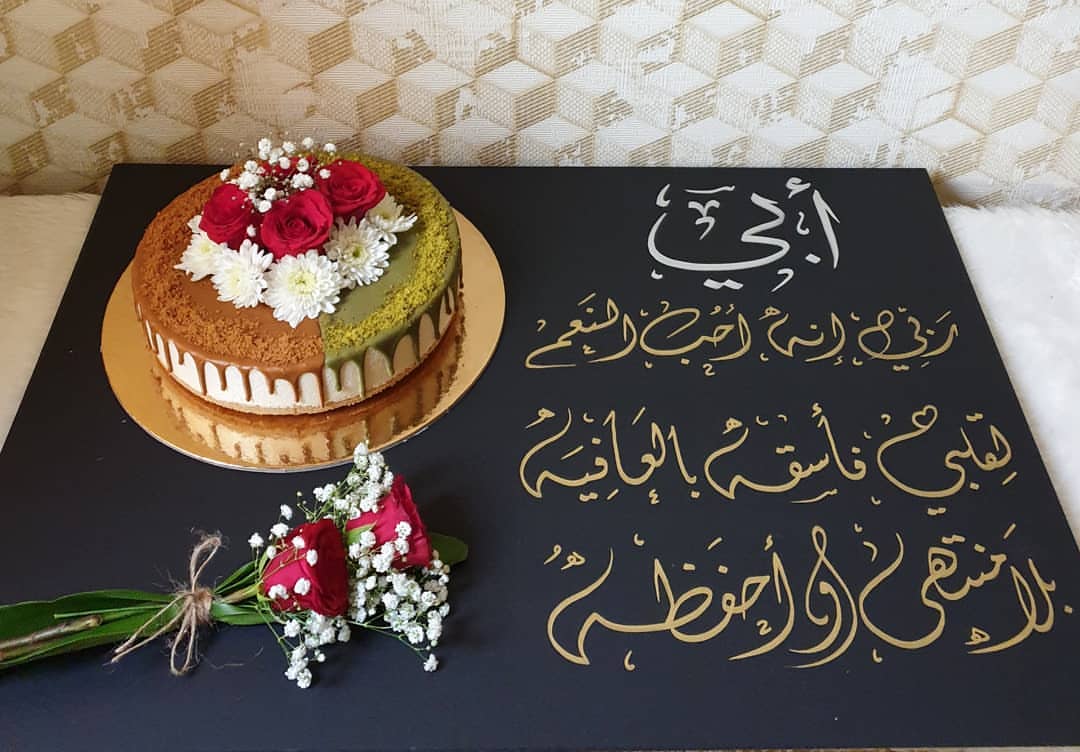 أبي
رَبي إنه أحُب النَعم
لِقلبي فأسقه بالعَافِيَه
بلا مَنتهى او أحفَظه